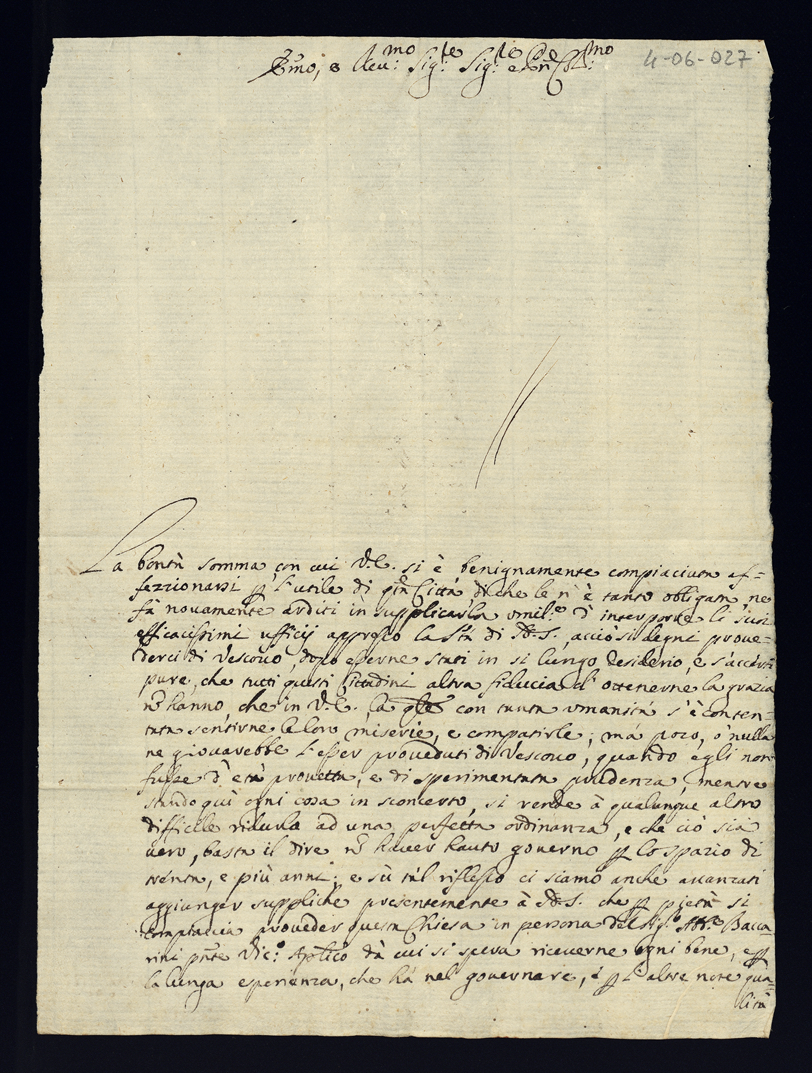 Em̃o, e Reu:mo Sig:re Sig:re e Pñe Col:mo
4-06-027
La bontà somma con cui V.E. si è benignamente compiaciuta af=
fezzionarsi ꝑ l'utile di q̃sta Città di che le n'è tanto obligata ne
fà nouamente arditi in supplicarla umil:e d'interporre li suoi
efficacissimi ufficij appresso la S.tà di N.S., acciò si degni proue=
derci di Vescouo, dopo esserne stati in si lungo desiderio, e s'accerti
pure, che tutti questi Cittadini altra fiducia d'ottenerne la grazia
nõ hanno, che in V.E. la q̃le con tanta umanità s'è conten=
tata sentirne le loro miserie, e compatirle; mà poco, ò nulla
ne giouarebbe l'esser proueduti di Vescouo, quando egli non
fusse d'età prouetta, e di sperimentata prudenza, mentre
stando quì ogni cosa in sconcerto, si rende à qualunque altro
difficile ridurla ad una perfetta ordinanza, e che ciò sia
uero, basta il dire nõ hauer hauto gouerno ꝑ lo spazio di
trenta, e più anni; e sù tal riflesso ci siamo anche auanzati
aggiunger suppliche presentemente à N.S. che ꝑ pietà si
compiaccia proueder questa Chiesa in persona del Sig:
Bacca=
rini pñte Vic:o Aplico dà cui si spera riceuerne ogni bene, e ꝑ
la lunga esperienza, che hà nel gouernare, e ꝑ l'altre note qua=
lità